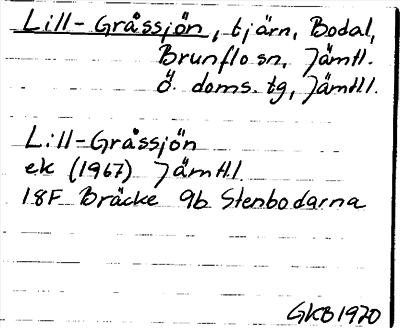 Lill-Gråssjön, tjärn, Bodal,
Brunflo sn, Jämtl.
Ö. doms. tg, Jämtl l.
Lill-Gråssjön
ek (1967) Jämtl.l.
18F Bräcke 9b Stenbodarna
GKB 1970